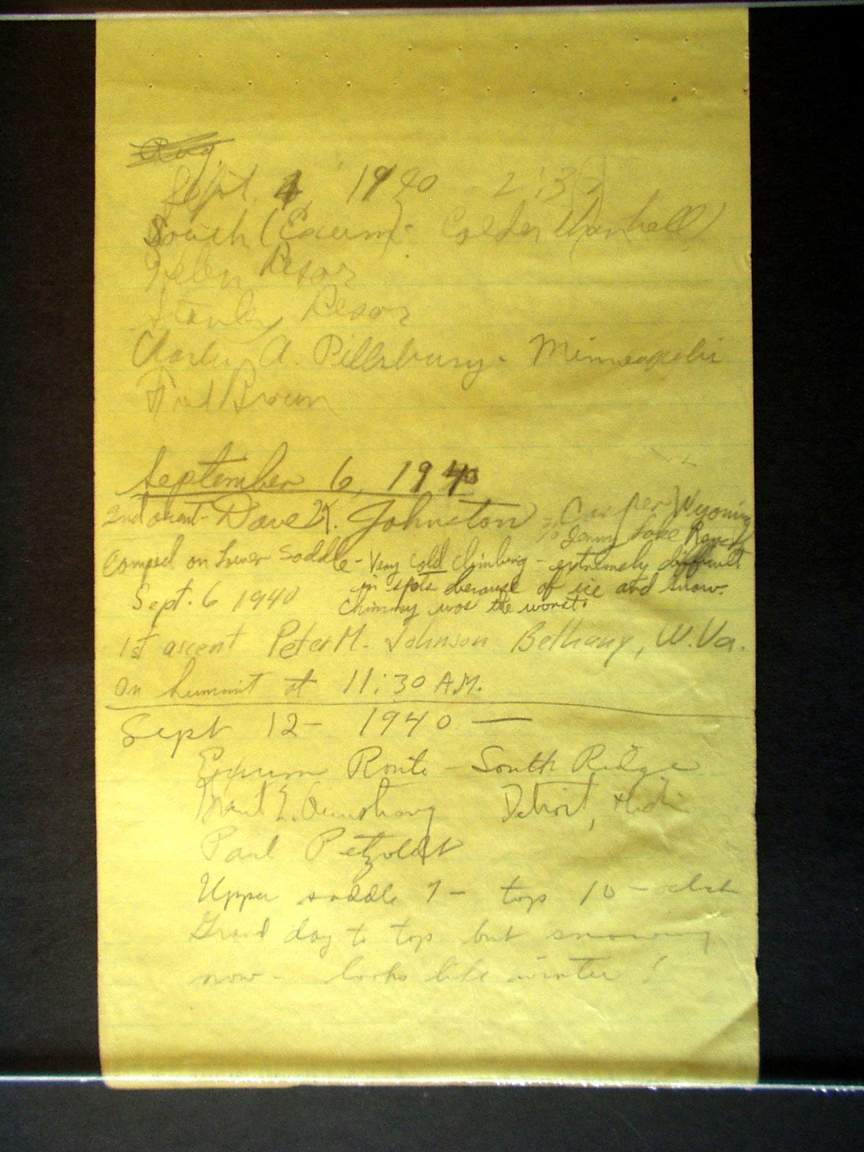 Aug
Sept. 4, 1940 2:37
South (Exum) - Colden
Helen Resor
Stanley Resor
Charles A. Pillsbury - Minneapolis
Brown
September 6, 1940
2nd ascent - Dave K. Johnston - Casper Wyoming
Jenny Lake Ranch
Camped on Lower Saddle - Very cold climbing - extremely difficult
in spots because of ice and snow.
Sept. 6 1940 Chimney was the worst.
1st ascent Peter M. Johnson Bethany, W. Va.
On Summit at 11:30 A.M.
Sept 12 - 1940 —
Exum Route - South Ridge
Armstrong Detroit, Mich
Paul Petzoldt
Upper saddle 7 - top 10 -
Grand day to top but snowing
now - looks like winter!